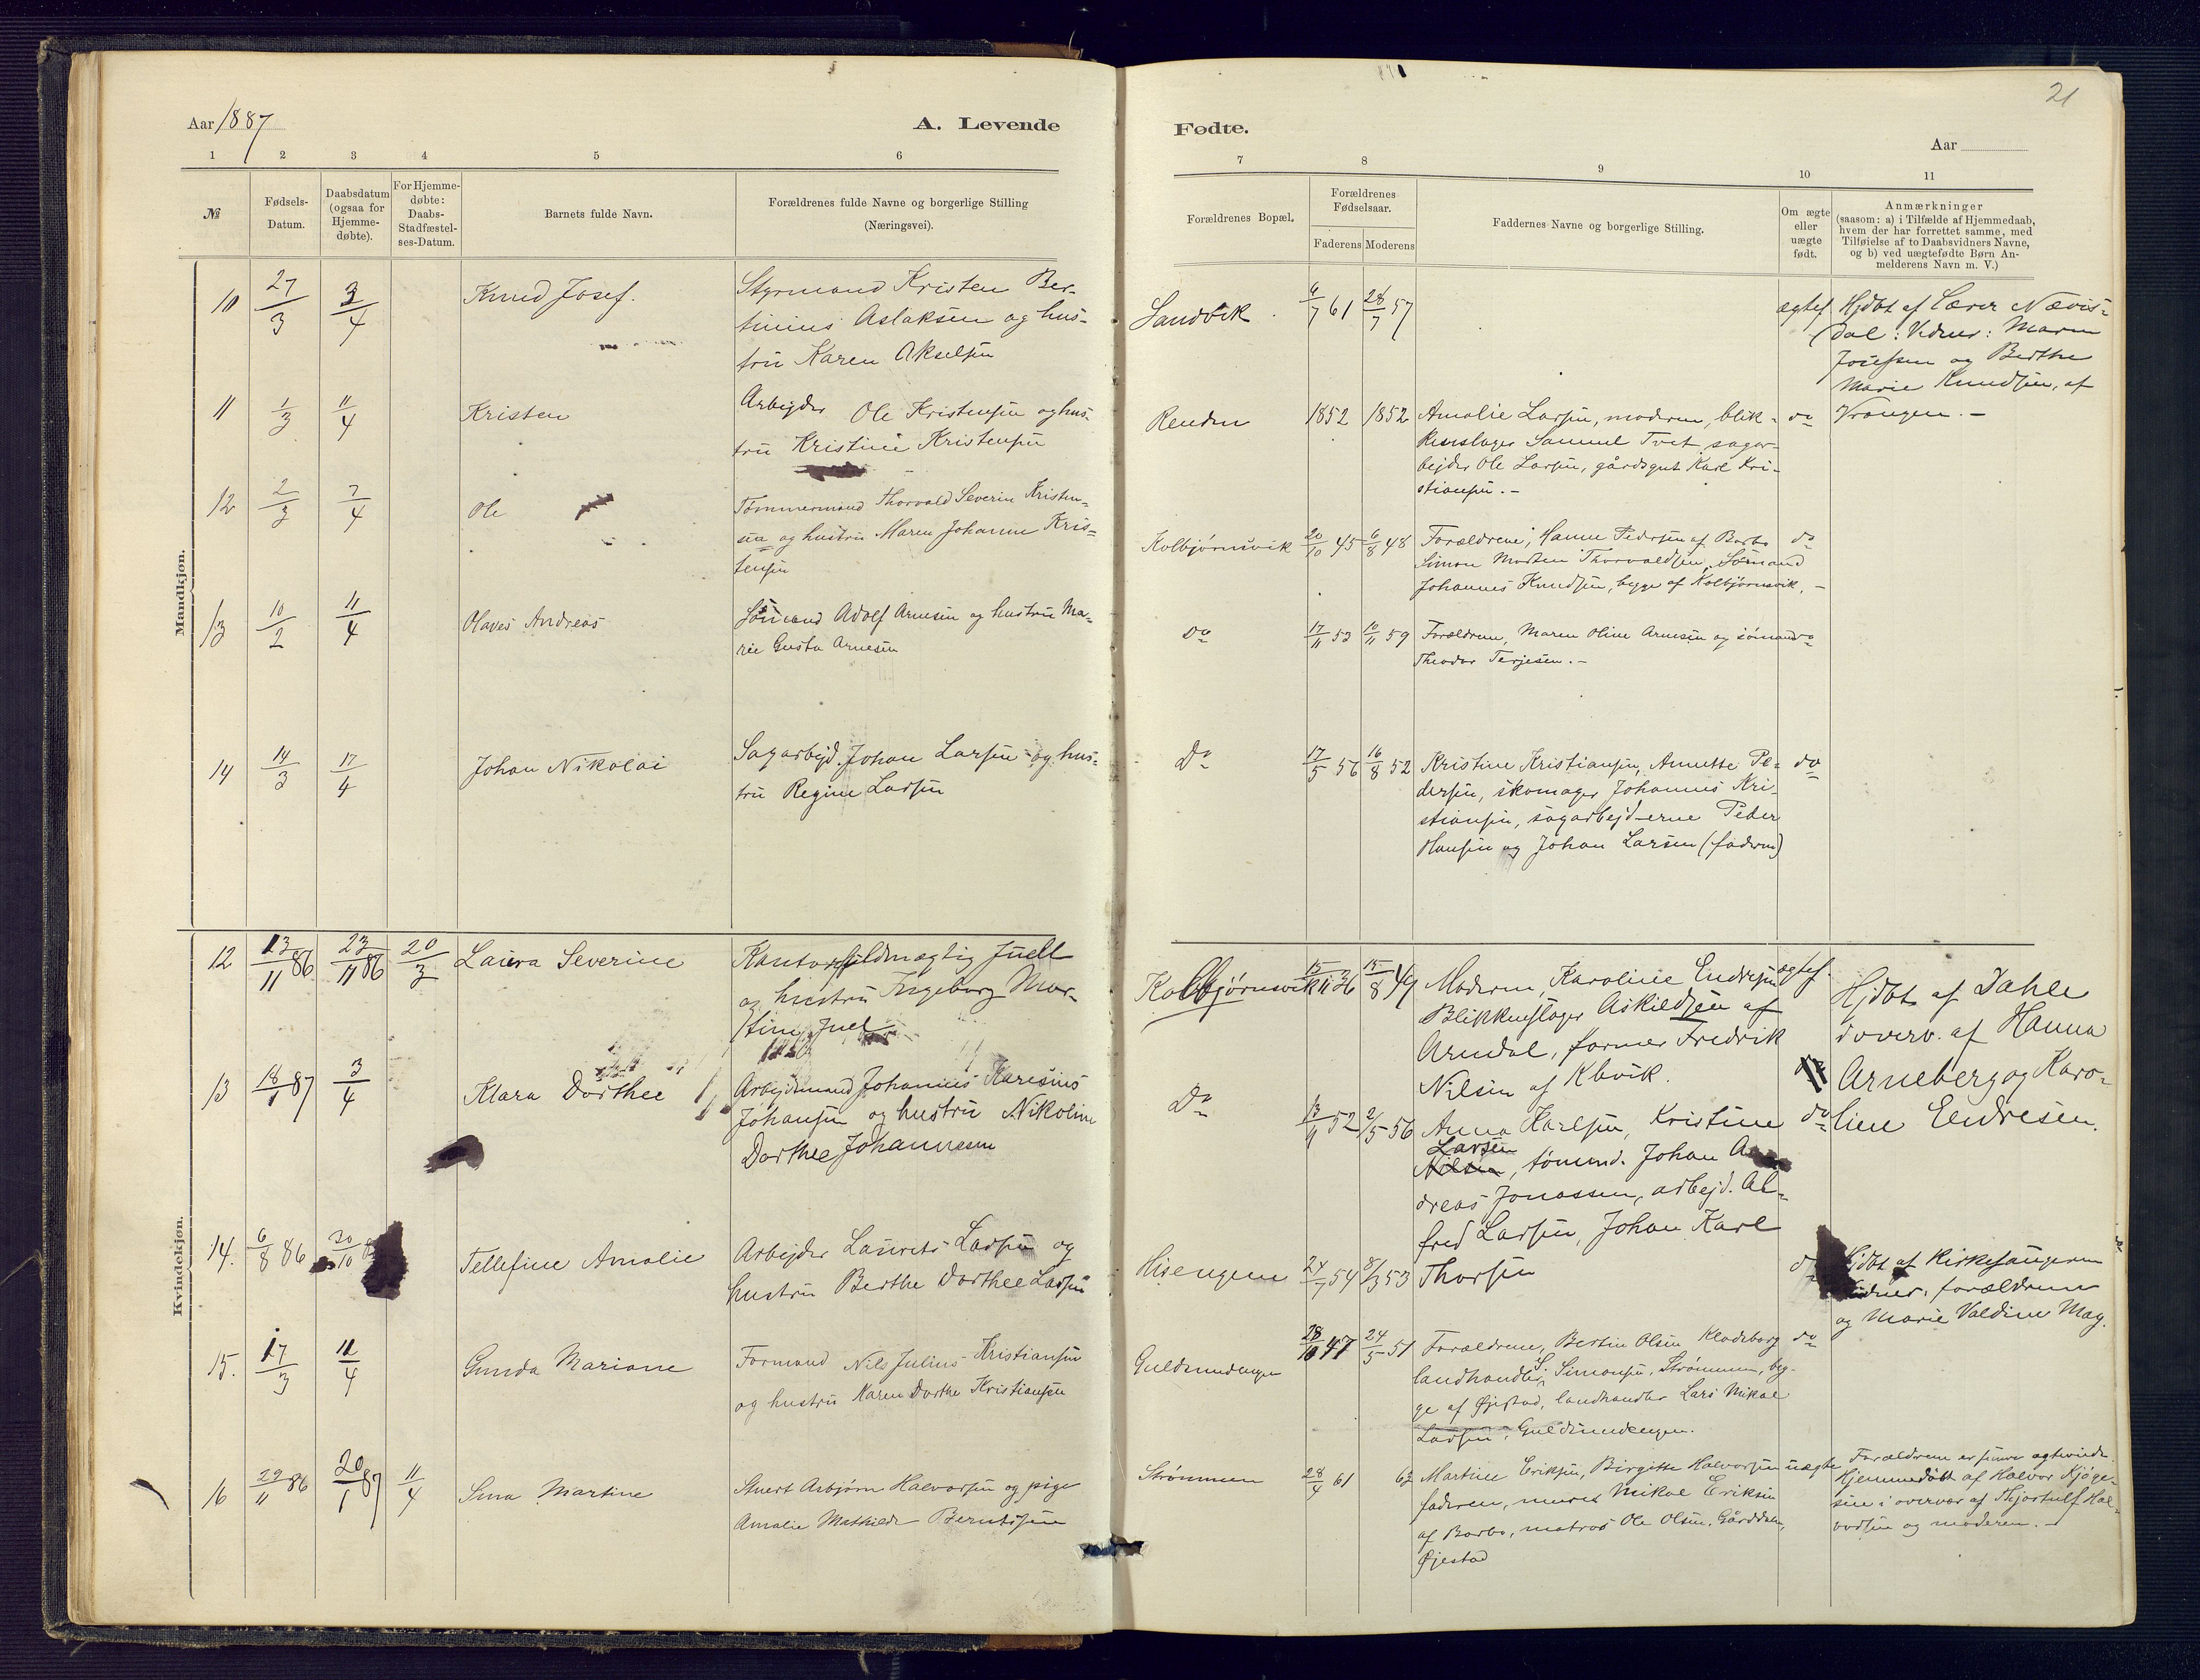 21
Aar 1887
A. Levende
Fødte.
Aar
1 2 3 4 5 6 7 8 9 10 11
№
Fødsels-
Datum.
Daabsdatum
(ogsaa for
Hjemme-
døbte).
For Hjemme-
døbte:
Daabs-
Stadfæstel-
ses-Datum.
Barnets fulde Navn.
Forældrenes fulde Navne og borgerlige Stilling
(Næringsvei).
Forældrenes Bopæl.
Forældrenes
Fødselsaar.
Faderens Moderens
Faddernes Navne og borgerlige Stilling.
Om ægte
eller
uægte
født.
Anmærkninger
(saasom: a) i Tilfælde af Hjemmedaab,
hvem der har forrettet samme, med
Tilføielse af to Daabsvidners Navne,
og b) ved uægtefødte Børn An-
melderens Navn m. V.)
Mandkjøn.
10 27/3 3/4 Knud Josef.
Styrmand Kristen Ber-
tinius Aslaksen og hus-
tru Karen Akselsen
Sandvik 6/7 61 28/7 57
ægtef.
Hjdøbt af Lærer Nævis-
dal: Vidner: Maren
Josefsen og Berthe
Marie Knudsen, af
Vrangen. -
11 1/3 11/4 Kristen
Arbejder Ole Kristensen og hus-
tru Kristine Kristensen
Renden 1852 1852
Amalie Larsen, moderen, blik-
kenslager Samuel Tvet, sagar-
bejder Ole Larsen, gårdsgut Karl Kri-
stiansen. -
do
12 2/3 7/4 Ole
Tømmermand Thorvald Severin Kristen-
sen og hustru Maren Johanne Kris-
tensen
Kolbjørnsvik 20/10 45 6/8 48
Forældrene; Hanne Pedersen af Barbo
Simon Morten Thorvaldsen, Sømand
Johannes Knudsen, begge af Kolbjørnsvik. -
do
13 10/2 11/4 Olaves Andreas
Sømand Adolf Arnesen og hustru Ma-
rie Gusta Arnesen
Do 17/11 53 10/11 59
Forældrene, Maren Oline Arnesen og sømand
Theodor Terjesen. -
do
14 14/3 17/4 Johan Nikolai
Sagarbejd. Johan Larsen og hus-
tru Regine Larsen
Do 17/5 56 16/8 52
Kristine Kristiansen, Annette Pe-
dersen, skomager Johannes Kri-
stiansen, sagarbejderne Peder
Hansen og Johan Larsen (faderen)
do
Kvindekjøn.
12 13/11 86 23/11 86 20/3 Laura Severine
Kontorfuldmægtig Juell
og hustru Ingeborg Mar-
tine Juel
Kolbjørnsvik 15/11 36 15/8 49
Moderen, Karoline Endresen
Blikkenslager Askildsen af
Arendal, former Fredrik
Nilsen af Kbvik.
ægtef.
Hjdøbt af Dahle
i overv. af Hanna
Arneberg og Karo-
line Endresen.
13 18/1 87 3/4 Klara Dorthee
Arbejdsmand Johannes Karesius
Johansen og hustru Nikoline
Dorthee Johannessen
Do 13/9 52 2/5 56
Anna Karlsen, Kristine
Larsen
Nilsen, tømmd. Johan An
dreas Jonassen, arbejd. Al-
fred Larsen, Johan Karl
Thorsen
do
14. 6/8 86 30/10 Tellefine Amalie
Arbejder Laurets Larsen og
hustru Berthe Dorthee Larsen
Hisengen 24/7 54 8/3 53
Hjdøbt af Kirkesangeren
Vidner: forældrene
og Marie Valdine Mag.
15. 17/3 11/4 Gunda Mariane
Formand Nils Julius Kristiansen
og hustru Karen Dorthe Kristiansen
Guldsmedengen 28/10 47 24/5 51
Forældrene, Bertin Olsen Klodeborg
landhandler S. Simonsen, Strømmen, beg-
ge af Øjestad, landhandler Lars Mikal
Larsen, Guldsmedengen.
do
16 29/11 86 20/1 87 11/4 Sina Martine
Stuert Asbjørn Halvorsen og pige
Amalie Mathilde Berntsen
Strømmen 28/4 61 63
Martine Eriksen, Birgitte Halvorsen
faderen, murer Mikal Eriksen
af Barbo, matros Ole Olsen, Gårddalen,
Øjestad
uægte
Forældrene er senere ægteviede
Hjemmedøbt af Halvor Kjøge-
sen i overvær af Thjostulf Hal-
vorsen og moderen. -